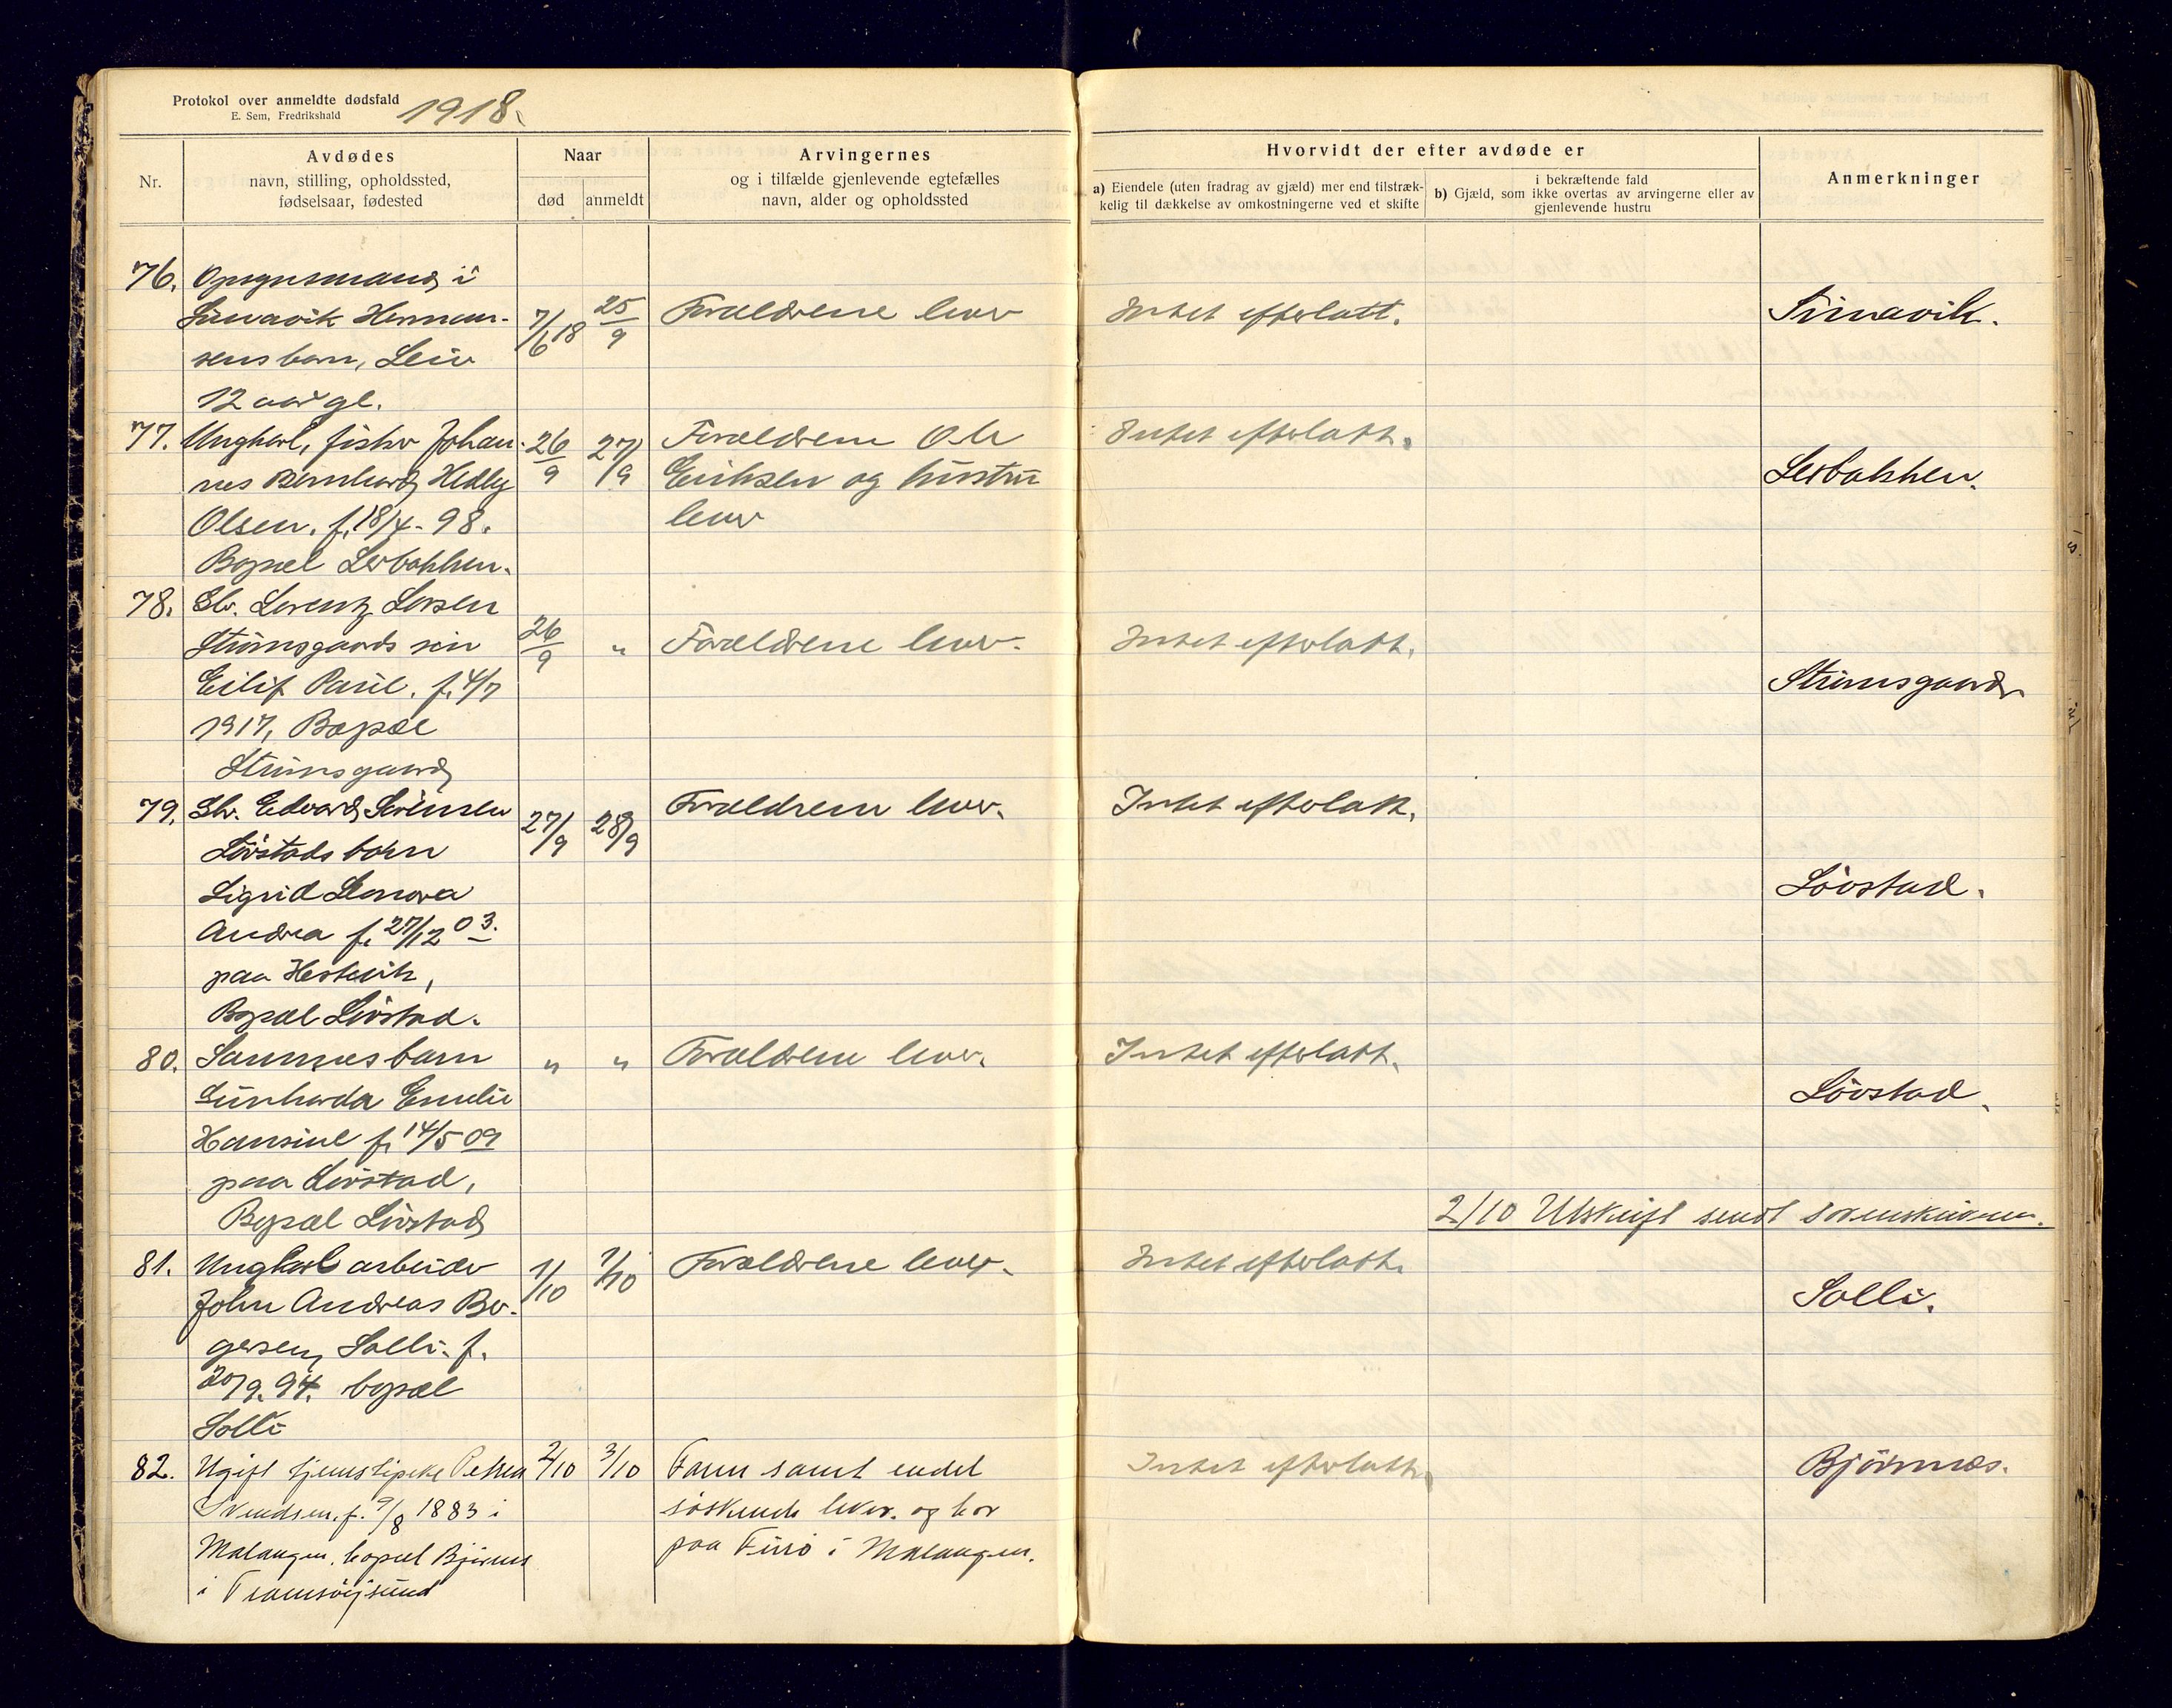 Protokol over anmeldte dødsfald
E. Sem, Fredrikshald
1918.
Nr.
Avdødes
navn, stilling, opholdssted,
fødselsaar, fødested
Naar
død
anmeldt
Arvingernes
og i tilfælde gjenlevende egtefælles
navn, alder og opholdssted
Hvorvidt der efter avdøde er
a) Eiendele (uten fradrag av gjæld) mer end tilstræk-
kelig til dækkelse av omkostningerne ved et skifte
i bekræftende fald
b) Gjæld, som ikke overtas av arvingerne eller av
gjenlevende hustru
Anmerkninger
76. Opsynsmand i
Herman- 7/6 18 25/9 Forældrene lever Intet efterlatt.
sens barn, Leiv
12 aar gl.
77. Ungkarl, fisker Johan- 26/9 27/9 Forældrene Ole Intet efterlatt.
nes Bernhard Hedley Eriksen og hustru Lerbakken.
Olsen. f. 18/4-98. lever
Bopæl Lerbakken.
78. Gbr. Lorentz Larsen
Strømsgaards søn 26/9 " Forældrene lever. Intet efterlatt.
Eilif Paul. f. 4/7 Strømsgaard
1917, Bopæl
Strømsgaard
79. Gbr. Edvard Sørensen 27/9 28/9 Forældrene lever. Intet efterlatt.
Løvstads barn
Sigrid Leonora Løvstad.
Andrea f. 27/12 03.
paa Hestevik,
Bopæl Løvstad.
80. Sammes barn " " Forældrene lever. Intet efterlatt.
Emelie Løvstad.
Hansine f. 14/5 09
paa Løvstad,
Bopæl Løvstad
2/10 Utskrift sendt sorenskriveren.
81. Ungkarl arbeider 1/10 1/10 Forældrene lever. Intet efterlatt.
John Andreas Ber- Solli.
gersen, Solli. f.
20/9. 94. bopæl
Solli
82. Ugift tjenestepike Petrea 2/10 3/10 Faren samt endel Intet efterlatt. Bjørnnæs.
Svendsen. f. 9/8 1883 i søskende lever. og bor
Malangen. bopæl Bjørnnes paa Furø i Malangen.
i Tromsøysund